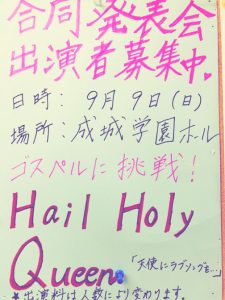 合同発表会
出演者募集中.
日時：9月9日(日)
場所：成城学園ホール
ゴスペルに挑戦！
Hail Holy
Queen.
「天使にラブソングを…」
★出演料は人数により変わります。